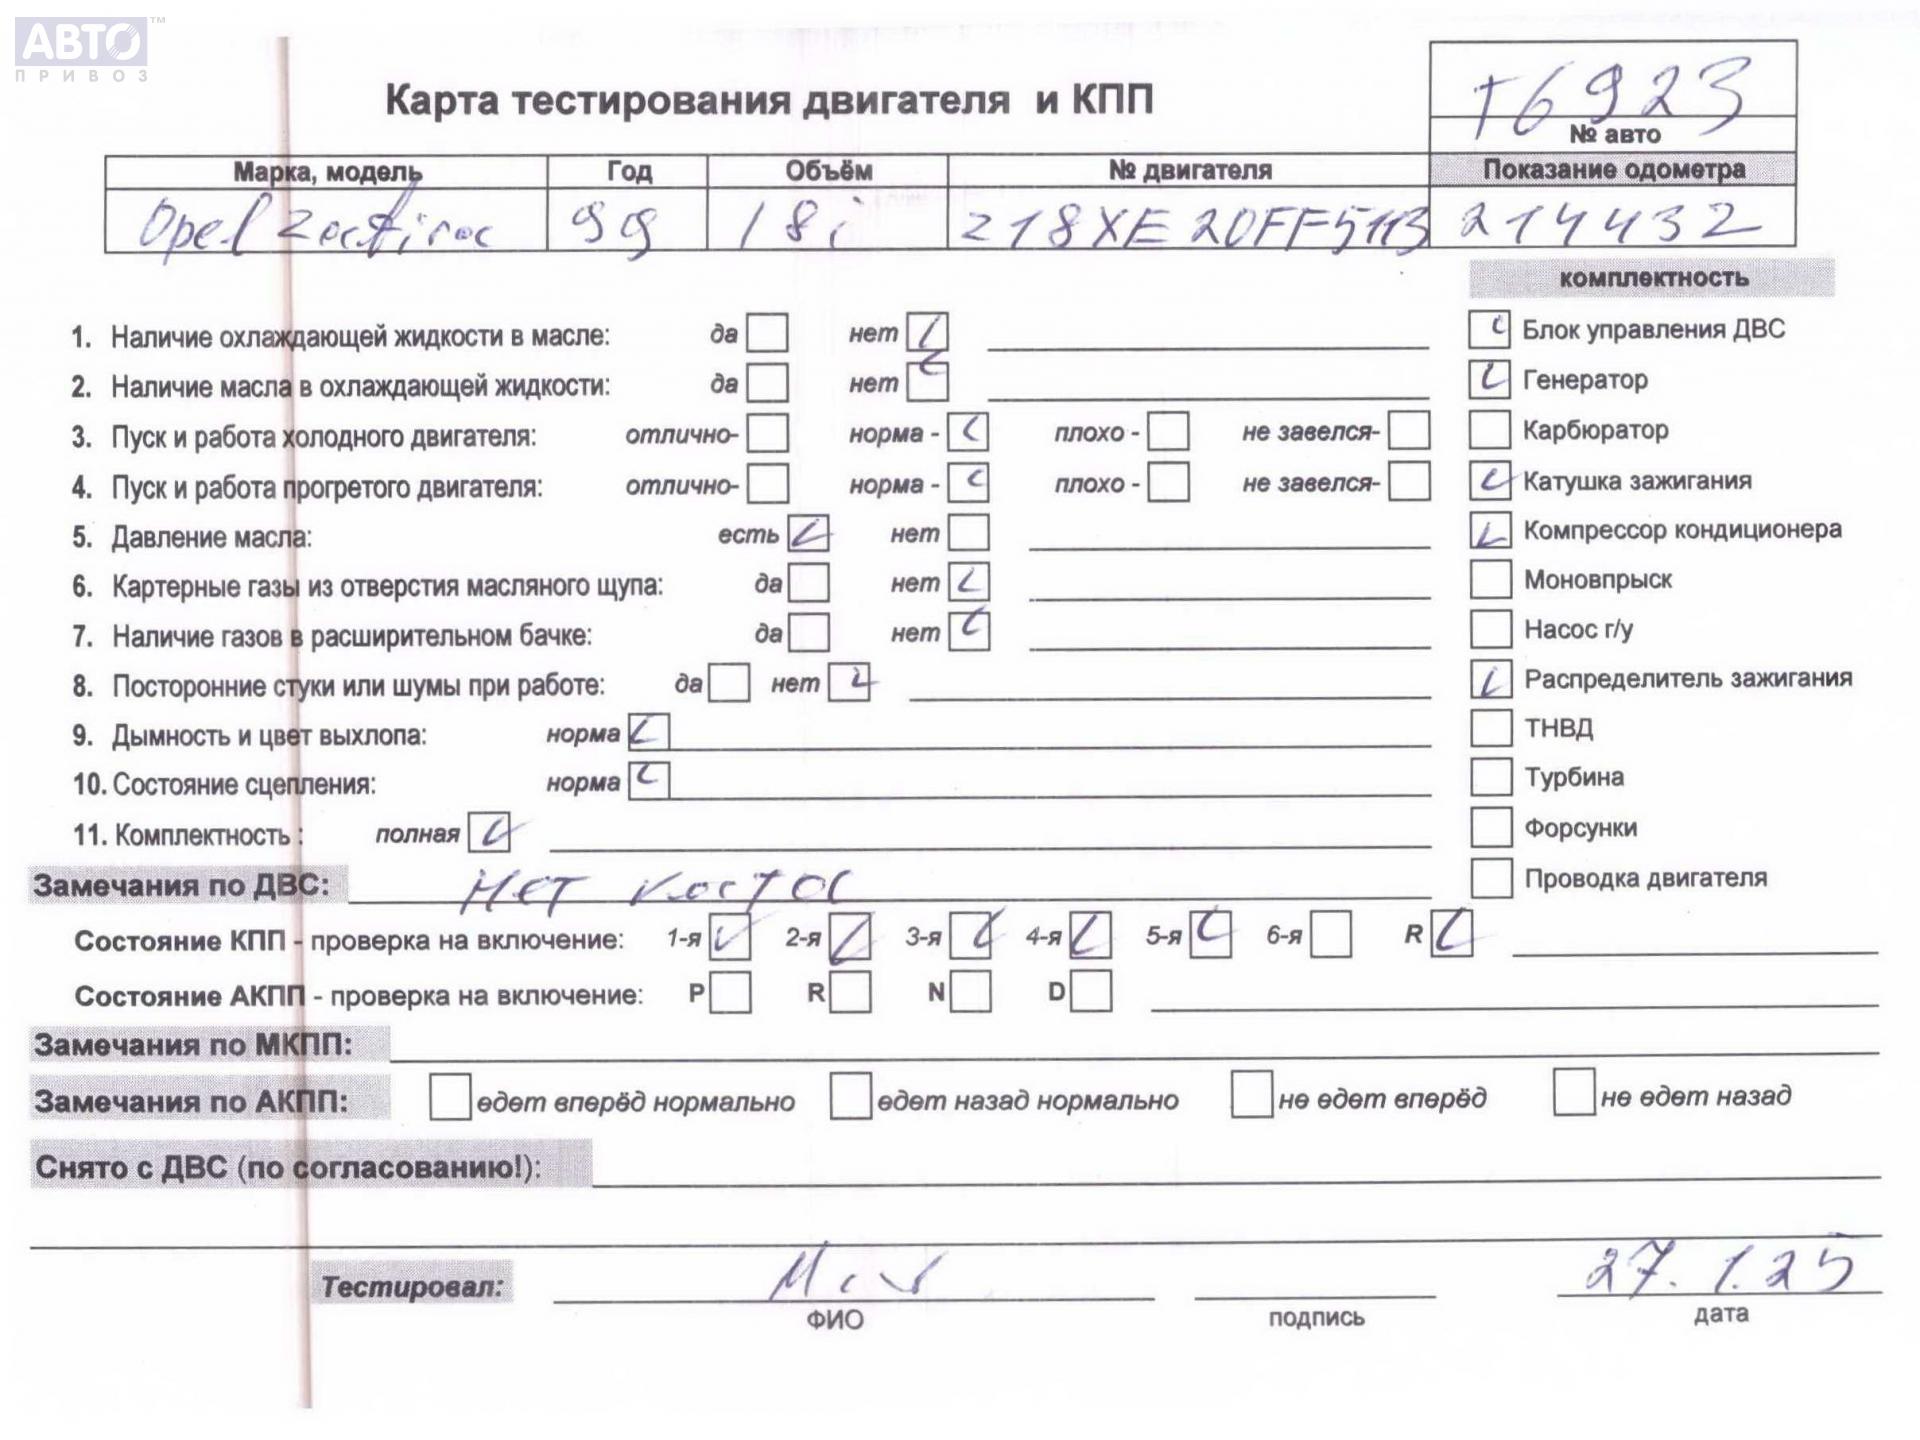 АВТО™
ПРИВОЗ
Карта тестирования двигателя и КПП
Т6923
№ авто
Марка, модель Год Объём № двигателя Показание одометра
Opel 99 18i Z18XE20FF5113 214432
комплектность
1. Наличие охлаждающей жидкости в масле: да нет
Блок управления ДВС
2. Наличие масла в охлаждающей жидкости: да нет
Генератор
3. Пуск и работа холодного двигателя: отлично- норма - плохо - не завелся-
Карбюратор
4. Пуск и работа прогретого двигателя: отлично- норма - плохо - не завелся-
Катушка зажигания
5. Давление масла: есть нет
Компрессор кондиционера
6. Картерные газы из отверстия масляного щупа: да нет
Моновпрыск
7. Наличие газов в расширительном бачке: да нет
Насос г/у
8. Посторонние стуки или шумы при работе: да нет
Распределитель зажигания
9. Дымность и цвет выхлопа: норма
ТНВД
10. Состояние сцепления: норма
Турбина
11. Комплектность : полная
Форсунки
Замечания по ДВС: Нет
Проводка двигателя
Состояние КПП - проверка на включение: 1-я 2-я 3-я 4-я 5-я 6-я R
Состояние АКПП - проверка на включение: P R N D
Замечания по МКПП:
Замечания по АКПП: едет вперёд нормально едет назад нормально не едет вперёд не едет назад
Снято с ДВС (по согласованию!):
Тестировал: 27.1.25
ФИО подпись дата